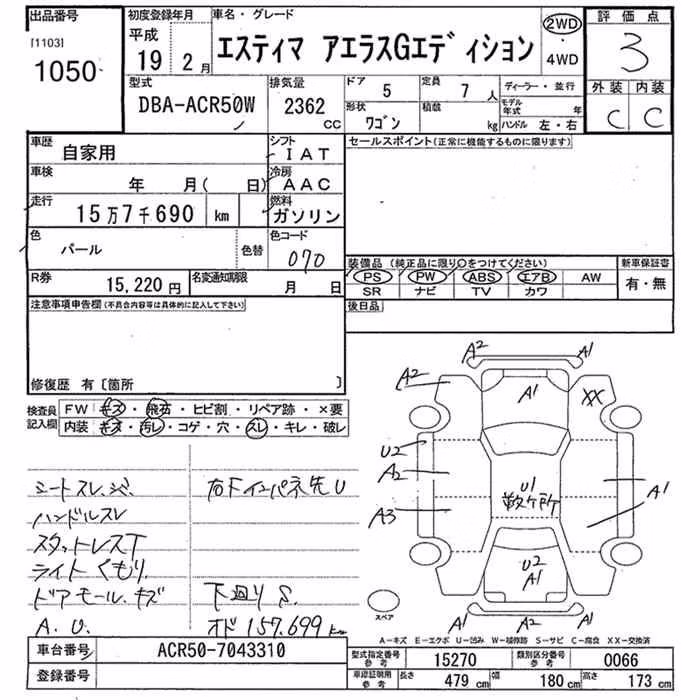 出品番号
[1103]
1050
初度登録年月
平成
19 年 2 月
車名・グレード
エスティマ アエラスGエディション
2WD
・
4WD
評価点
3
外装 内装
C C
型式
DBA-ACR50W
排気量
2362 CC
ドア
5
定員
7 人
形状
ワゴン
積載
kg
ディーラー・並行
モデル年式 年
ハンドル 左・右
車歴
自家用
シフト
IAT
車検
年 月( 日)
冷房
AAC
走行
15万7千690 km
燃料
ガソリン
色
パール
色替
色コード
070
R券
15,220 円
名変通知期限
月 日
セールスポイント(正常に機能するものに限ります)
装備品(純正品に限り○をつけてください)
PS PW ABS エアB AW
SR ナビ TV カワ
新車保証書
有・無
後日品
注意事項申告欄(不具合内容等は具体的に記入して下さい)
修復歴 有〔箇所 〕
検査員記入欄
FW キズ・飛石・ヒビ割・リペア跡・×要
内装 キズ・汚レ・コゲ・穴・スレ・キレ・破レ
シートスレ、シミ
ハンドルスレ
スタットレスT
ライトくもり
ドアモール、キズ
A. U.
右下インパネ先U
下廻りS.
オド157.699 km
A2 A1
A2
A1
XX
U2
A2
A3
U1
数ヶ所
A1
U2
A1
A1 A2 A1
スペア
A-キズ E-エクボ U-凹み W-補修跡 S-サビ C-腐食 XX-交換済
車台番号
ACR50-7043310
登録番号
型式指定番号
参考
15270
類別区分番号
参考
0066
車庫証明用
参考
長さ 479 cm 幅 180 cm 高さ 173 cm